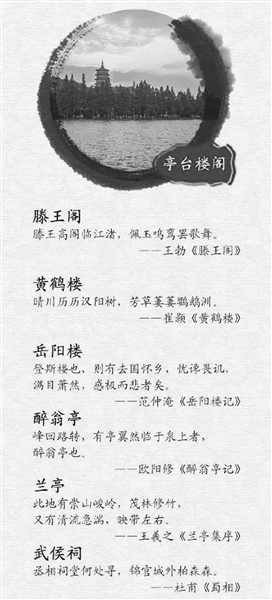 亭台楼阁
滕王阁
滕王高阁临江渚，佩玉鸣鸾罢歌舞。
——王勃《滕王阁》
黄鹤楼
晴川历历汉阳树，芳草萋萋鹦鹉洲。
——崔颢《黄鹤楼》
岳阳楼
登斯楼也，则有去国怀乡，忧谗畏讥，
满目萧然，感极而悲者矣。
——范仲淹《岳阳楼记》
醉翁亭
峰回路转，有亭翼然临于泉上者，
醉翁亭也。
——欧阳修《醉翁亭记》
兰亭
此地有崇山峻岭，茂林修竹，
又有清流急湍，映带左右。
——王羲之《兰亭集序》
武侯祠
丞相祠堂何处寻，锦官城外柏森森。
——杜甫《蜀相》